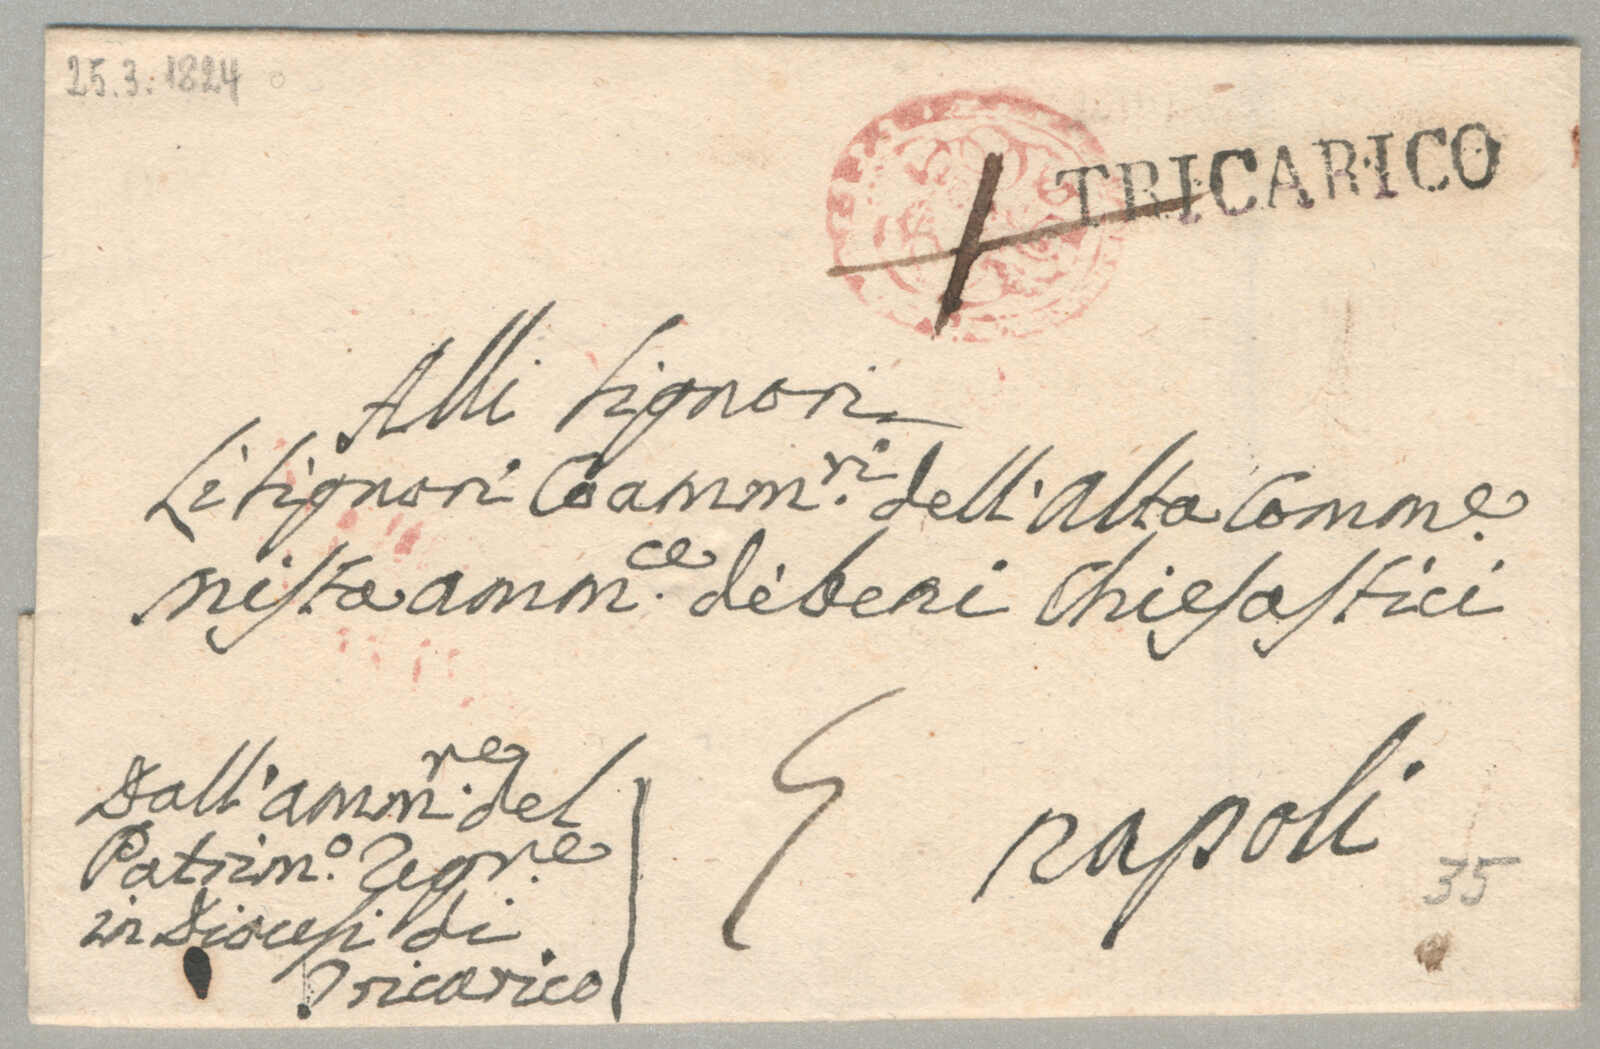 25.3.1824
TRICARICO
Alli Signori
Li Signori Commri. dell'alta Comme.
mista ammce. de' beni Chiesastici
Dall'ammre. del
Patrimo. Regre.
in Diocesi di
Tricarico
Napoli
35